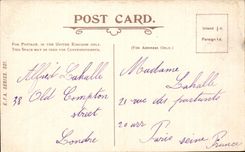 POST CARD.
FOR POSTAGE IN THE UNITED KINGDOM ONLY,
THIS SPACE MAY BE USED FOR CORRESPONDENCE.
(FOR ADDRESS ONLY.)
Inland ½d.
Foreign 1d.
E.F.A. SERIES
Alfred Lahalle
38 Old Compton
street
Londre
Madame
Lahalle
21 rue des
20 arr
Paris seine
France